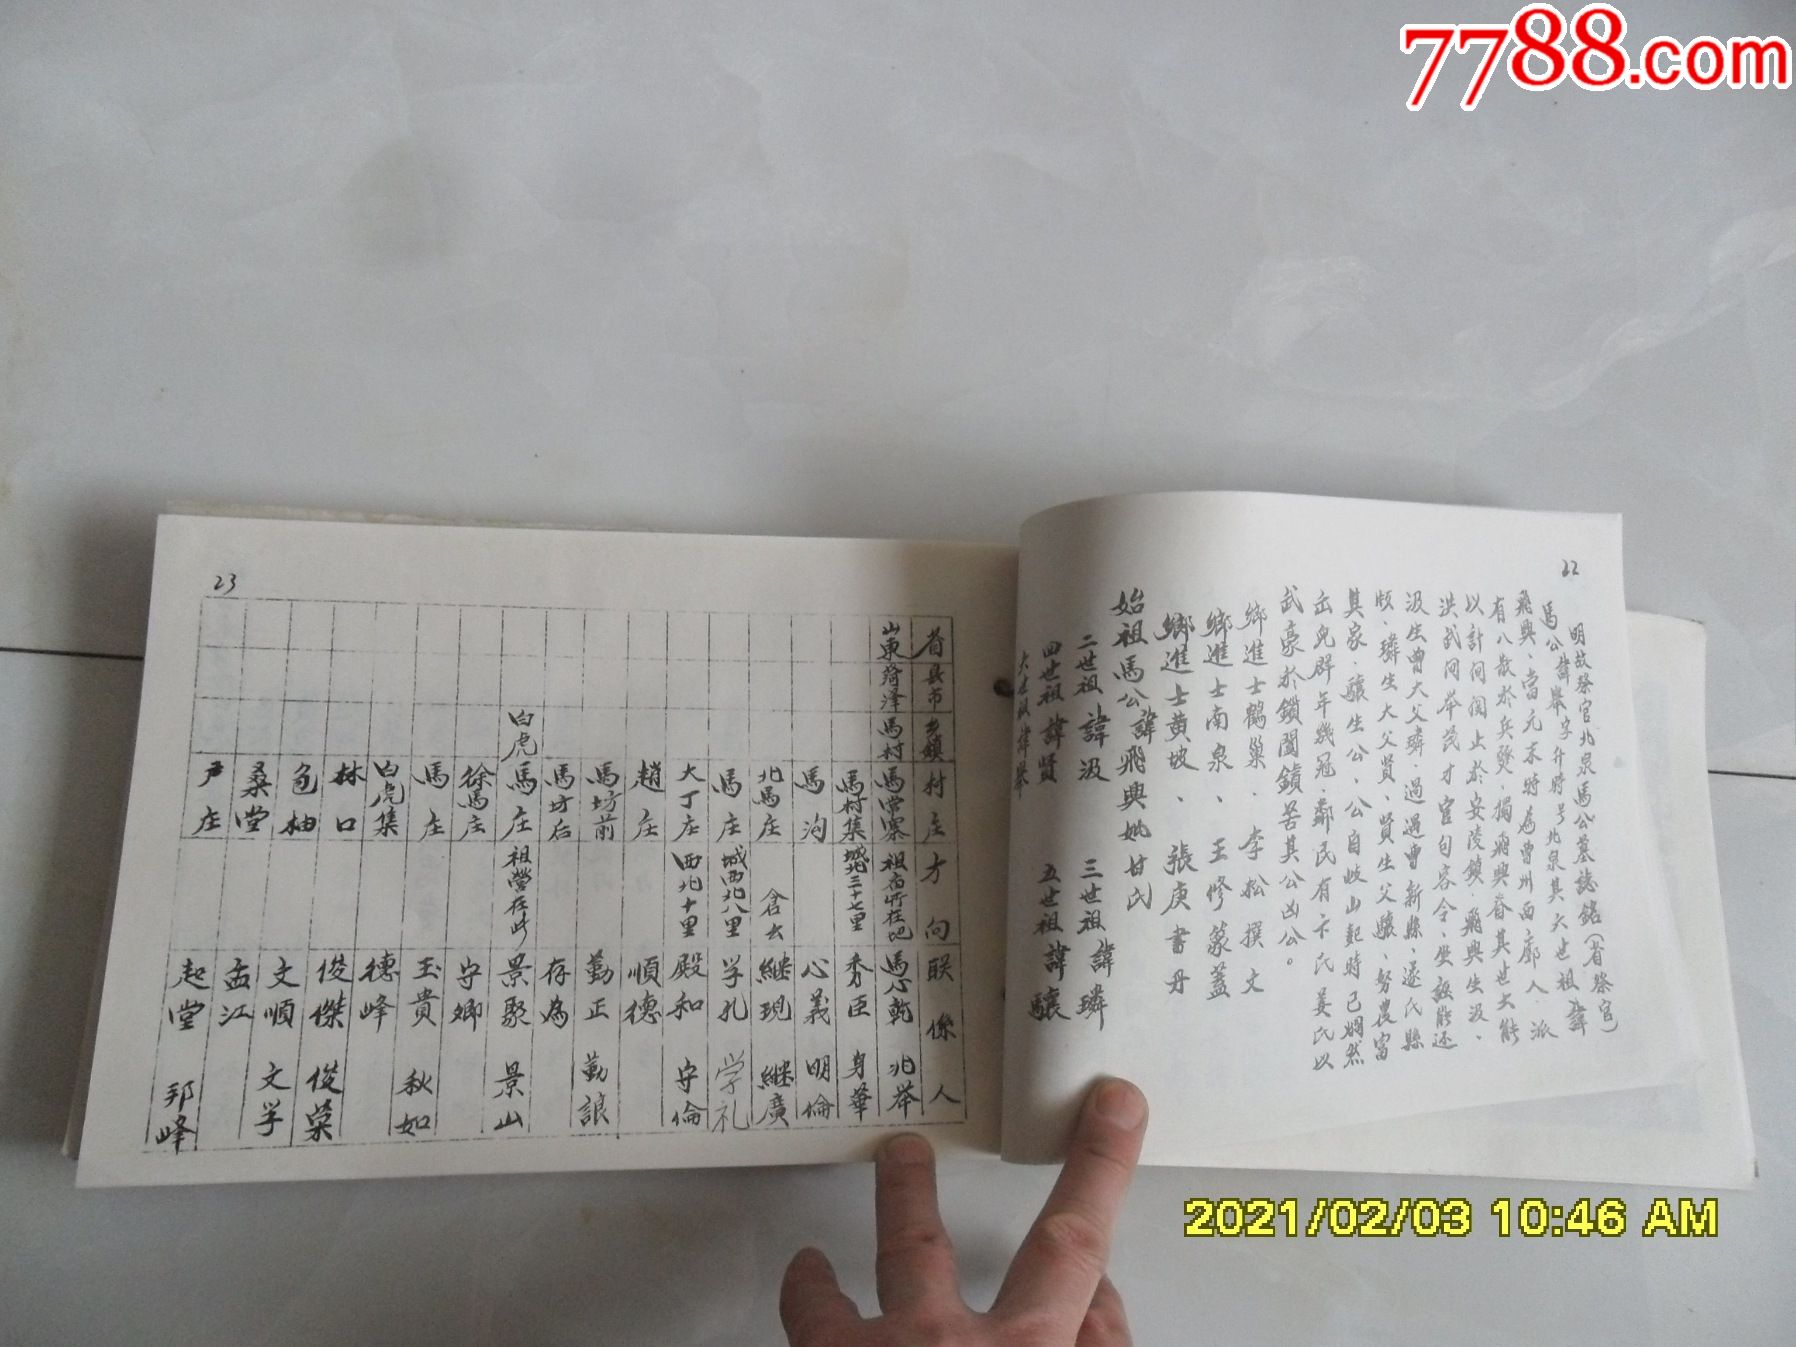 7788.com
22
明故祭官北泉馬公墓誌銘(省祭官)
馬公諱舉字升時号北泉其六世祖諱
飛興、當元末時為曹州西廓人派
有八散於兵燹、揭飛興眷其世大能
以計间阅止於安陵鎮、飛興生汲、
洪武间举茂才官句容令、坐誣能还
汲生曾大父璘、過過曹新縣、遂氏縣
版、璘生大父賢、賢生父驤、努農富
其家、驤生公、公自岐山起時已炯然
武豪於鎖闖鎮苦其公凶公。
鄉進士鶴巢、李松撰文
鄉進士南泉、王修篆蓋
鄉進士黄坡、張庚書丹
始祖馬公諱飛興妣甘氏
二世祖諱汲 三世祖諱璘
四世祖諱賢 五世祖諱驤
六世祖諱舉
23
省 县市 乡鎮 村庄 才向 联係人
山東 菏泽 馬村 馬常寨 祖居所在地 馬心乾 兆举
馬村集 城北二十七里 秀臣 身華
馬沟 心義 明倫
北馬庄 倉么 継現 継廣
馬庄 城西北八里 学孔 学礼
大丁庄 西北十里 殿和 守倫
趙庄 順德
馬坊前 勤正 勤誏
馬坊后 存為
白虎 馬庄 祖营存此 景聚 景山
徐馬庄 守卿
馬庄 玉貴 秋如
白虎集 德峰
林口 俊傑 俊荣
文順 文学
桑堂 孟江
尹庄 起堂 邦峰
2021/02/03 10:46 AM